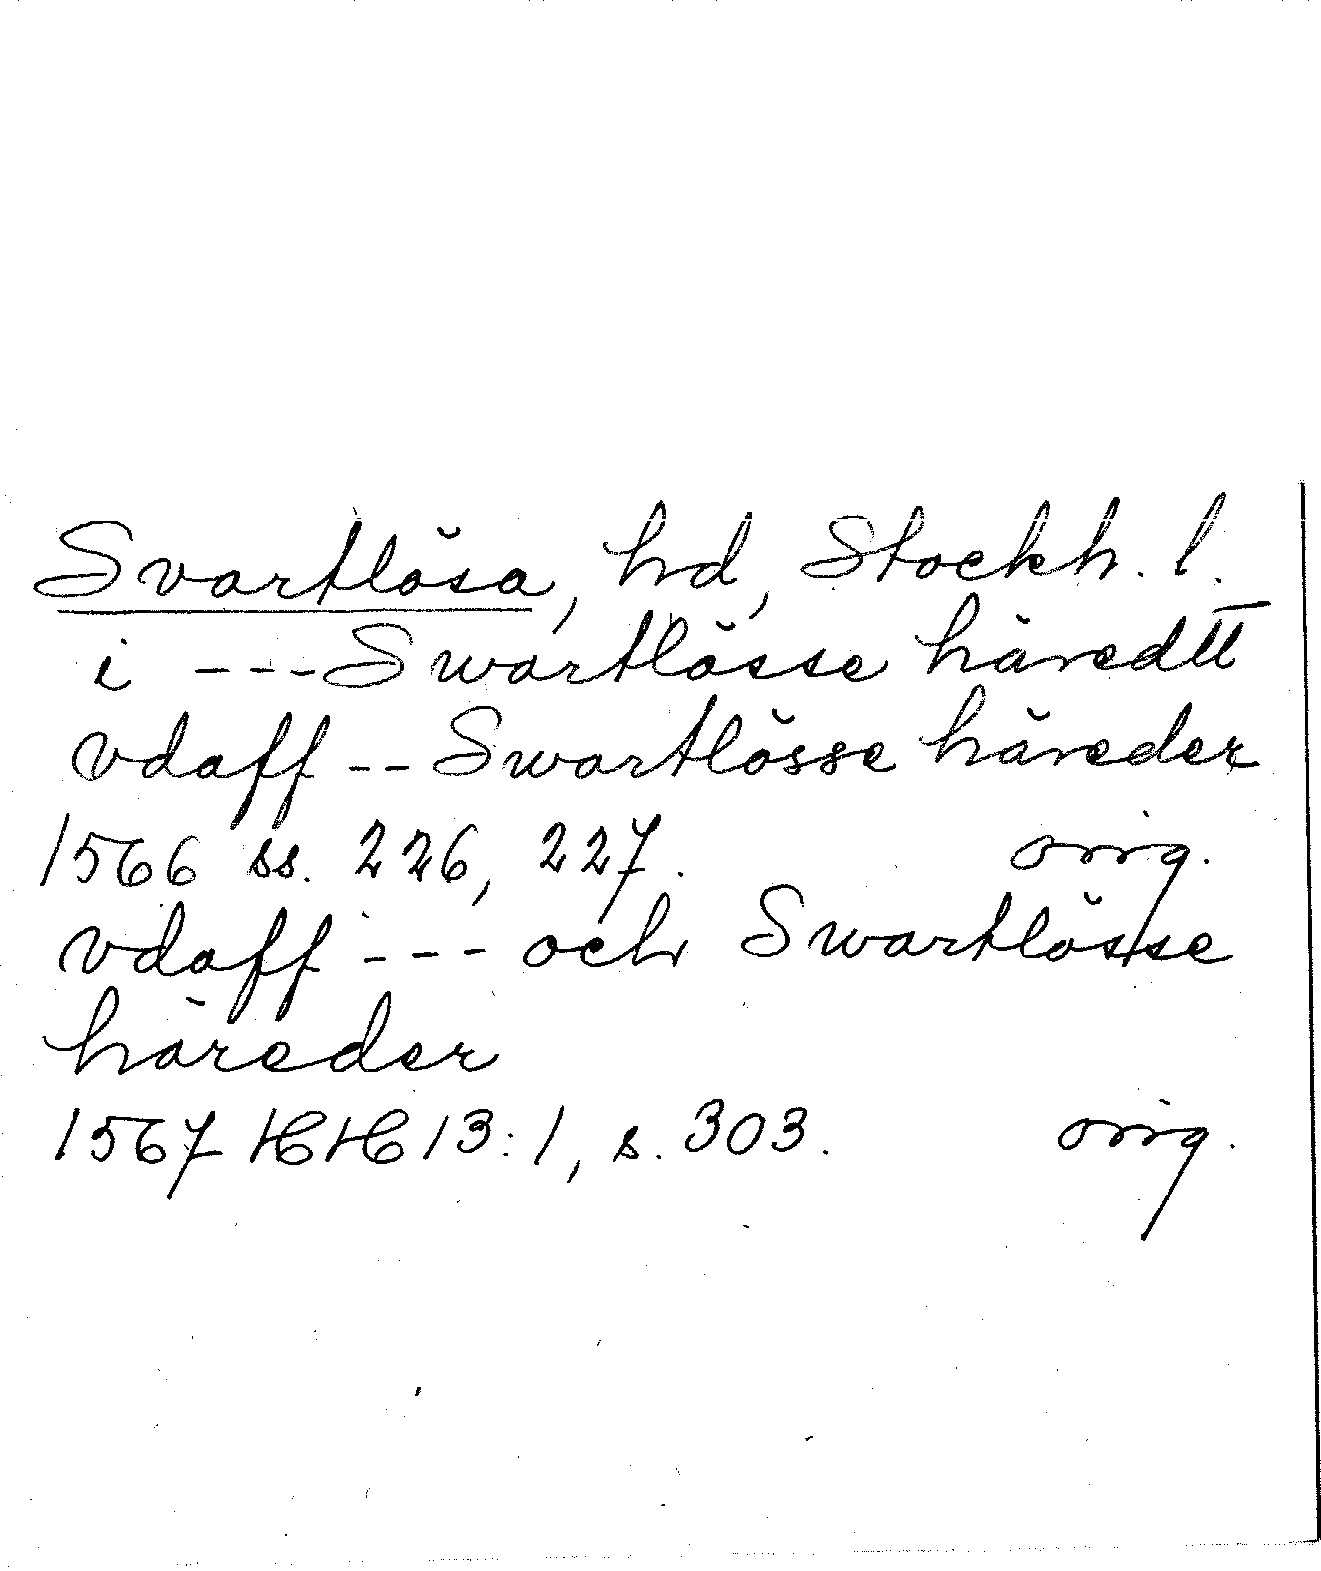 Svartlösa, hd, Stockh. l.
i --- Swartlösse häredtt
vdaff -- Swartlösse häreder
1566 ss. 226, 227. orig.
vdaff --- och Swartlösse
häreder
1567 HH 13:1, s. 303. orig.